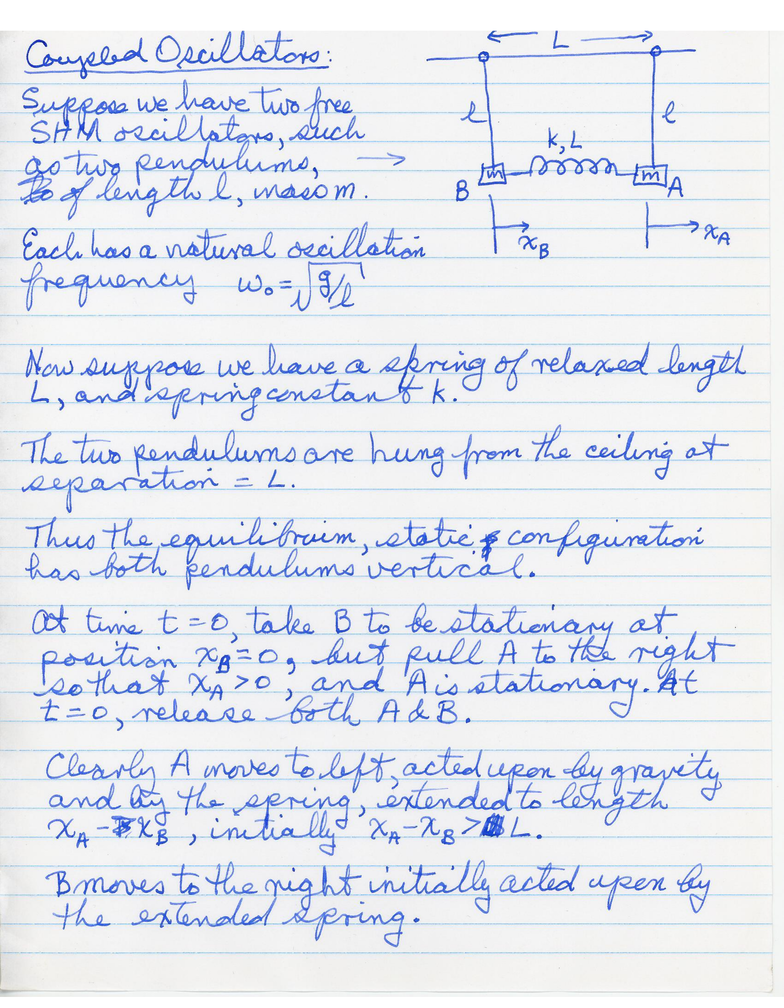 Coupled Oscillators:
Suppose we have two free
SHM oscillators, such
as two pendulums, →
of length l, mass m.
L
l
l
k, L
m
m
B
A
x_B
x_A
Each has a natural oscillation
frequency ω₀ = √g/l
Now suppose we have a spring of relaxed length
L, and spring constant k.
The two pendulums are hung from the ceiling at
separation = L.
Thus the equilibruim, static configuration
has both pendulums vertical.
At time t = 0, take B to be stationary at
position x_B = 0, but pull A to the right
so that x_A > 0, and A is stationary. At
t = 0, release both A & B.
Clearly A moves to left, acted upon by gravity
and by the spring, extended to length
x_A - x_B, initially x_A - x_B > L.
B moves to the right initially acted upon by
the extended spring.